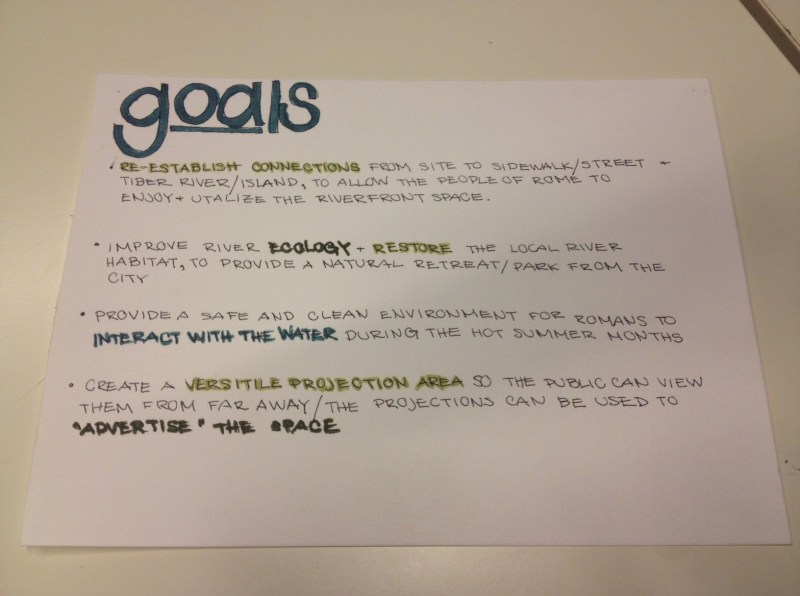 goals
• RE-ESTABLISH CONNECTIONS FROM SITE TO SIDEWALK/STREET +
TIBER RIVER/ISLAND, TO ALLOW THE PEOPLE OF ROME TO
ENJOY + UTALIZE THE RIVERFRONT SPACE.
• IMPROVE RIVER ECOLOGY + RESTORE THE LOCAL RIVER
HABITAT, TO PROVIDE A NATURAL RETREAT/PARK FROM THE
CITY
• PROVIDE A SAFE AND CLEAN ENVIRONMENT FOR ROMANS TO
INTERACT WITH THE WATER DURING THE HOT SUMMER MONTHS
• CREATE A VERSITILE PROJECTION AREA SO THE PUBLIC CAN VIEW
THEM FROM FAR AWAY/THE PROJECTIONS CAN BE USED TO
"ADVERTISE" THE SPACE